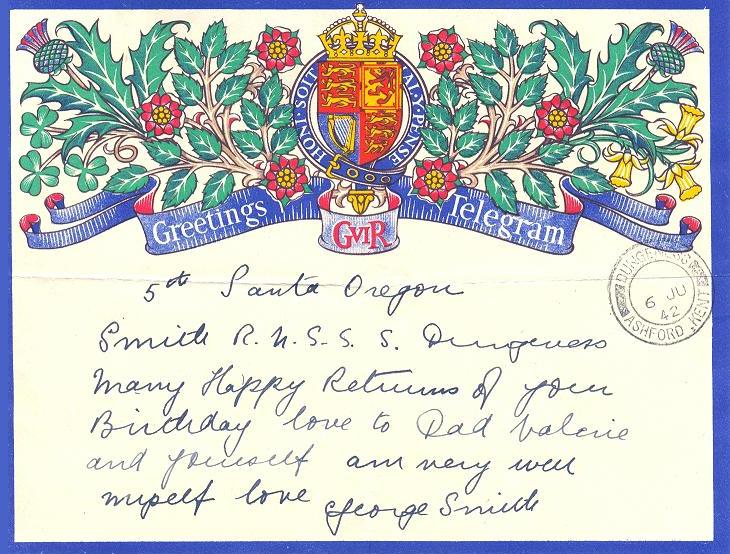 HONI·SOIT
ALY·PENSE
Greetings
GVIR
Telegram
DUNGENESS
6 JU
42
ASHFORD KENT
5th Santa Oregon
Smith R.N.S.S.S. Dungeness
Many Happy Returns of your
Birthday love to Dad Valerie
and yourself am very well
myself love George Smith